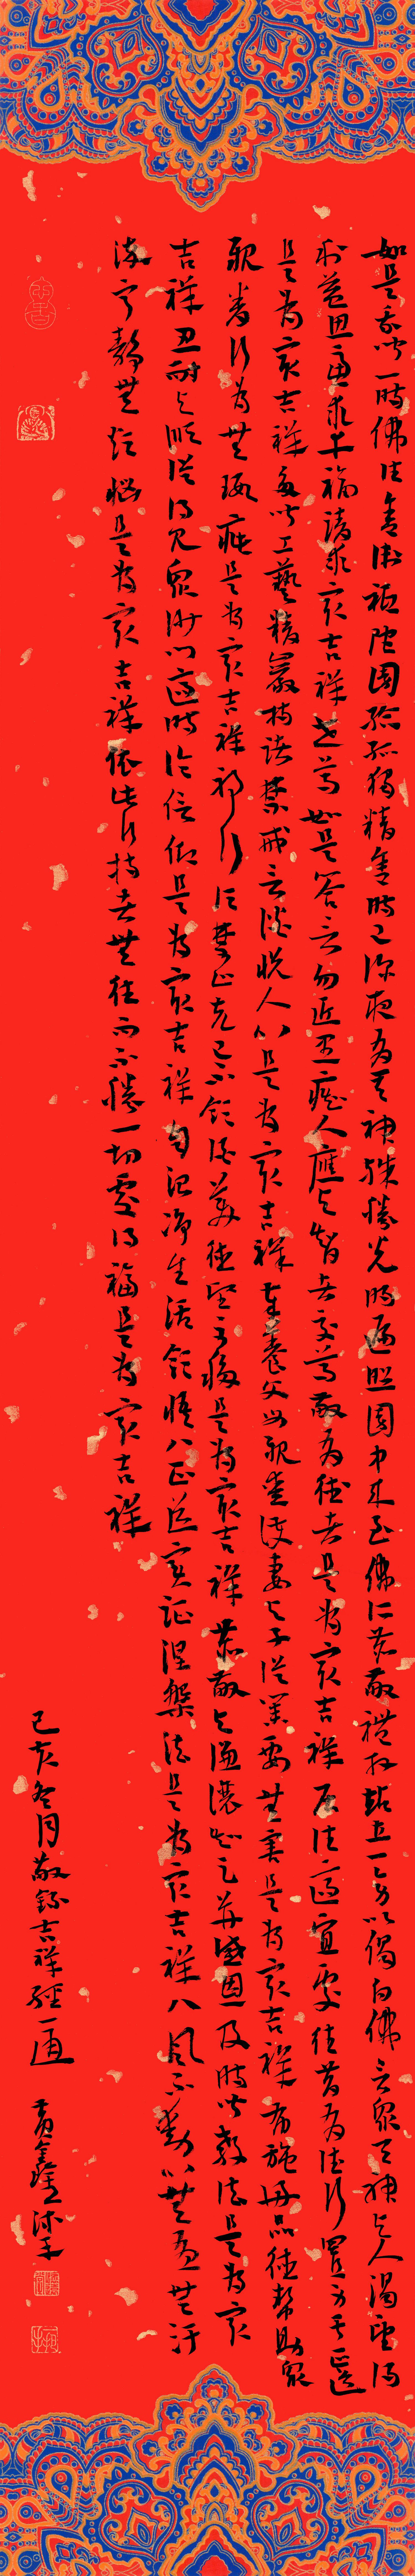 如是我聞一時佛住舍衛祇陀園給孤獨精舍時已深夜有天神殊勝光明遍照園中来至佛所恭敬禮拜站立一旁以偈白佛言眾天神与人渴望得
利益思慮求幸福請求最吉祥世尊如是答言勿近愚癡人應与智者交尊敬有德者是為最吉祥居住適宜處往昔有德行置身于正道
是為最吉祥多聞工藝精嚴持諸禁戒言談悦人心是為最吉祥奉養父母親愛護妻与子從業要無害是為最吉祥布施好品德幫助眾
親眷行為無瑕疵是為最吉祥邪行須禁止克己不飲酒美德堅不移是為最吉祥恭敬与謙讓知足并感恩及時聞教法是為最
吉祥忍耐与順從得見眾沙門適時論信仰是為最吉祥自制净生活領悟八正道實証涅槃法是為最吉祥八風不動心無憂無污
染寧静無煩惱是為最吉祥依此行持者無往而不勝一切處得福是為最吉祥
己亥冬月敬錄吉祥經一通 沐手